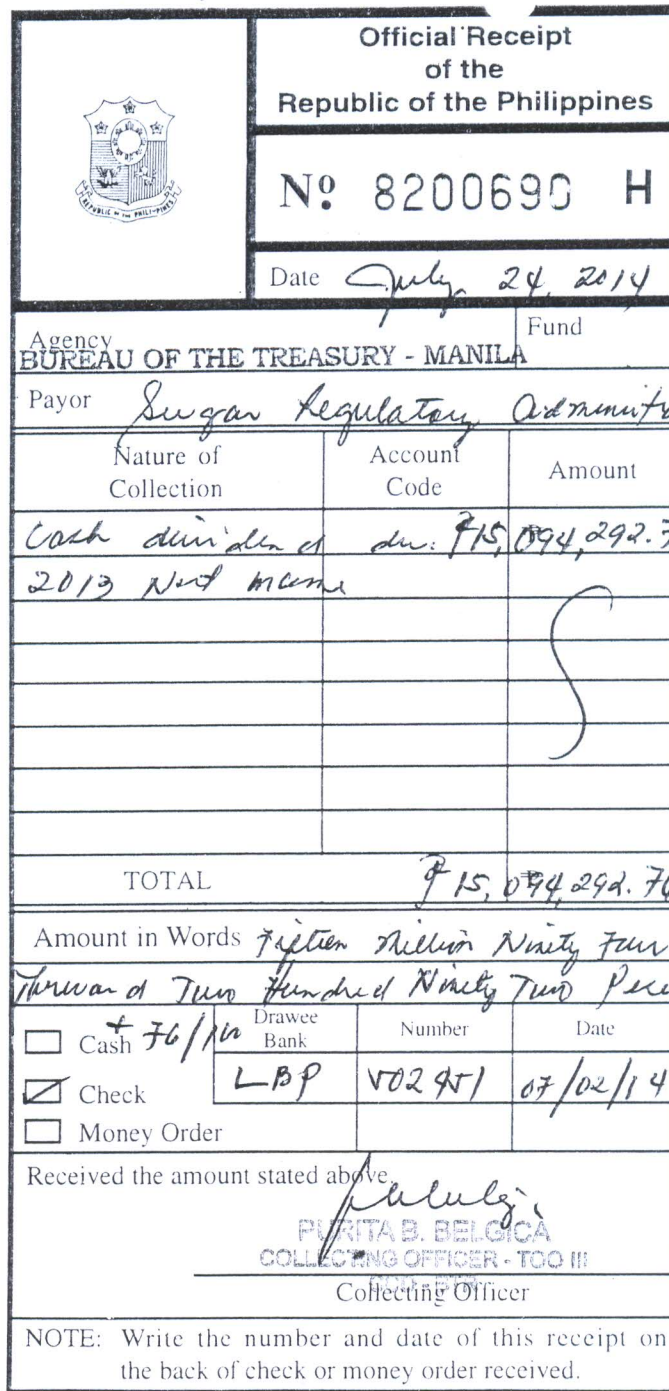 Official Receipt
of the
Republic of the Philippines
REPUBLIC OF THE PHILIPPINES
Nº 8200690 H
Date July 24, 2014
Agency
Fund
BUREAU OF THE TREASURY - MANILA
Payor Sugar Regulatory Administra
Nature of Collection
Account Code
Amount
Cash dividend du: ₱15,094,292.7
2013 Net income
TOTAL ₱15,094,292.76
Amount in Words Fifteen Million Ninety Four
Thousand Two Hundred Ninety Two Peso
Cash + 76/100
Drawee Bank
Number
Date
Check
LBP
502951
07/02/14
Money Order
Received the amount stated above.
PURITA B. BELGICA
COLLECTING OFFICER - TOO III
Collecting Officer
NOTE: Write the number and date of this receipt on
the back of check or money order received.